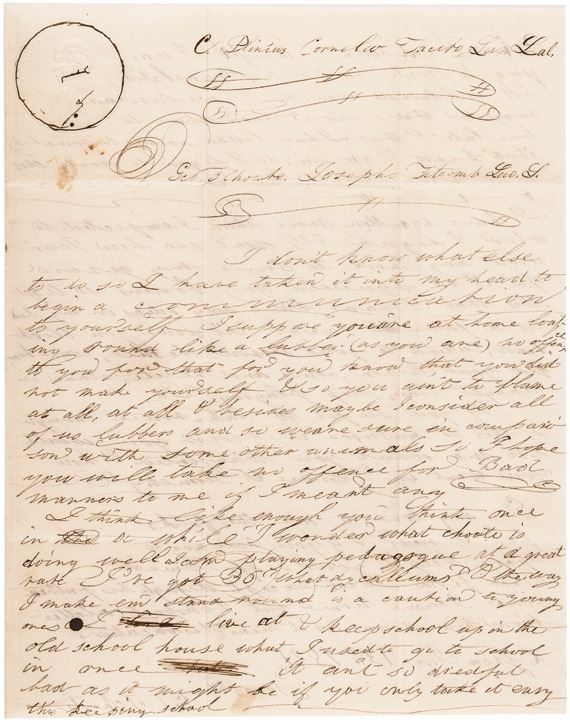 C. Plinius Cornelio Tacito Suo Sal.
Geo Choate. Josepho Titcomb Suo S.
I don't know what else
to do so I have taken it into my head to
begin a communication
to yourself I suppose you are at home loaf-
ing round like a lubber (as you are) no offence
to you for that for you know that you did
not make yourself & so you ain't to blame
at all, at all & besides maybe I consider all
of us lubbers and so we are sure in compari
son with some other animals so I hope
you will take no offence for Bad
manners to me if I meant any
I think like enough you think once
in a while "I wonder what choate is
doing well I am playing pedagogue at a great
rate I've got 30 "what d'y callums" & the way
I make em stand round is a caution to young
ones I live at & keep school up in the
old school house what I used to go to school
in once It ain't so dredful
bad as it might be if you only take it easy
this keeping school